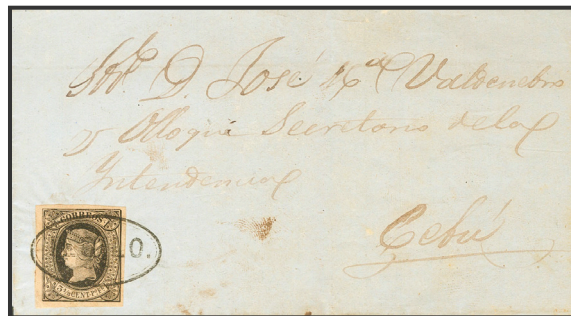 Sor. D. José Ma. Valdenebro
y Olloqui Secretario de la
Intendencia
Cebú
CORREOS
O.